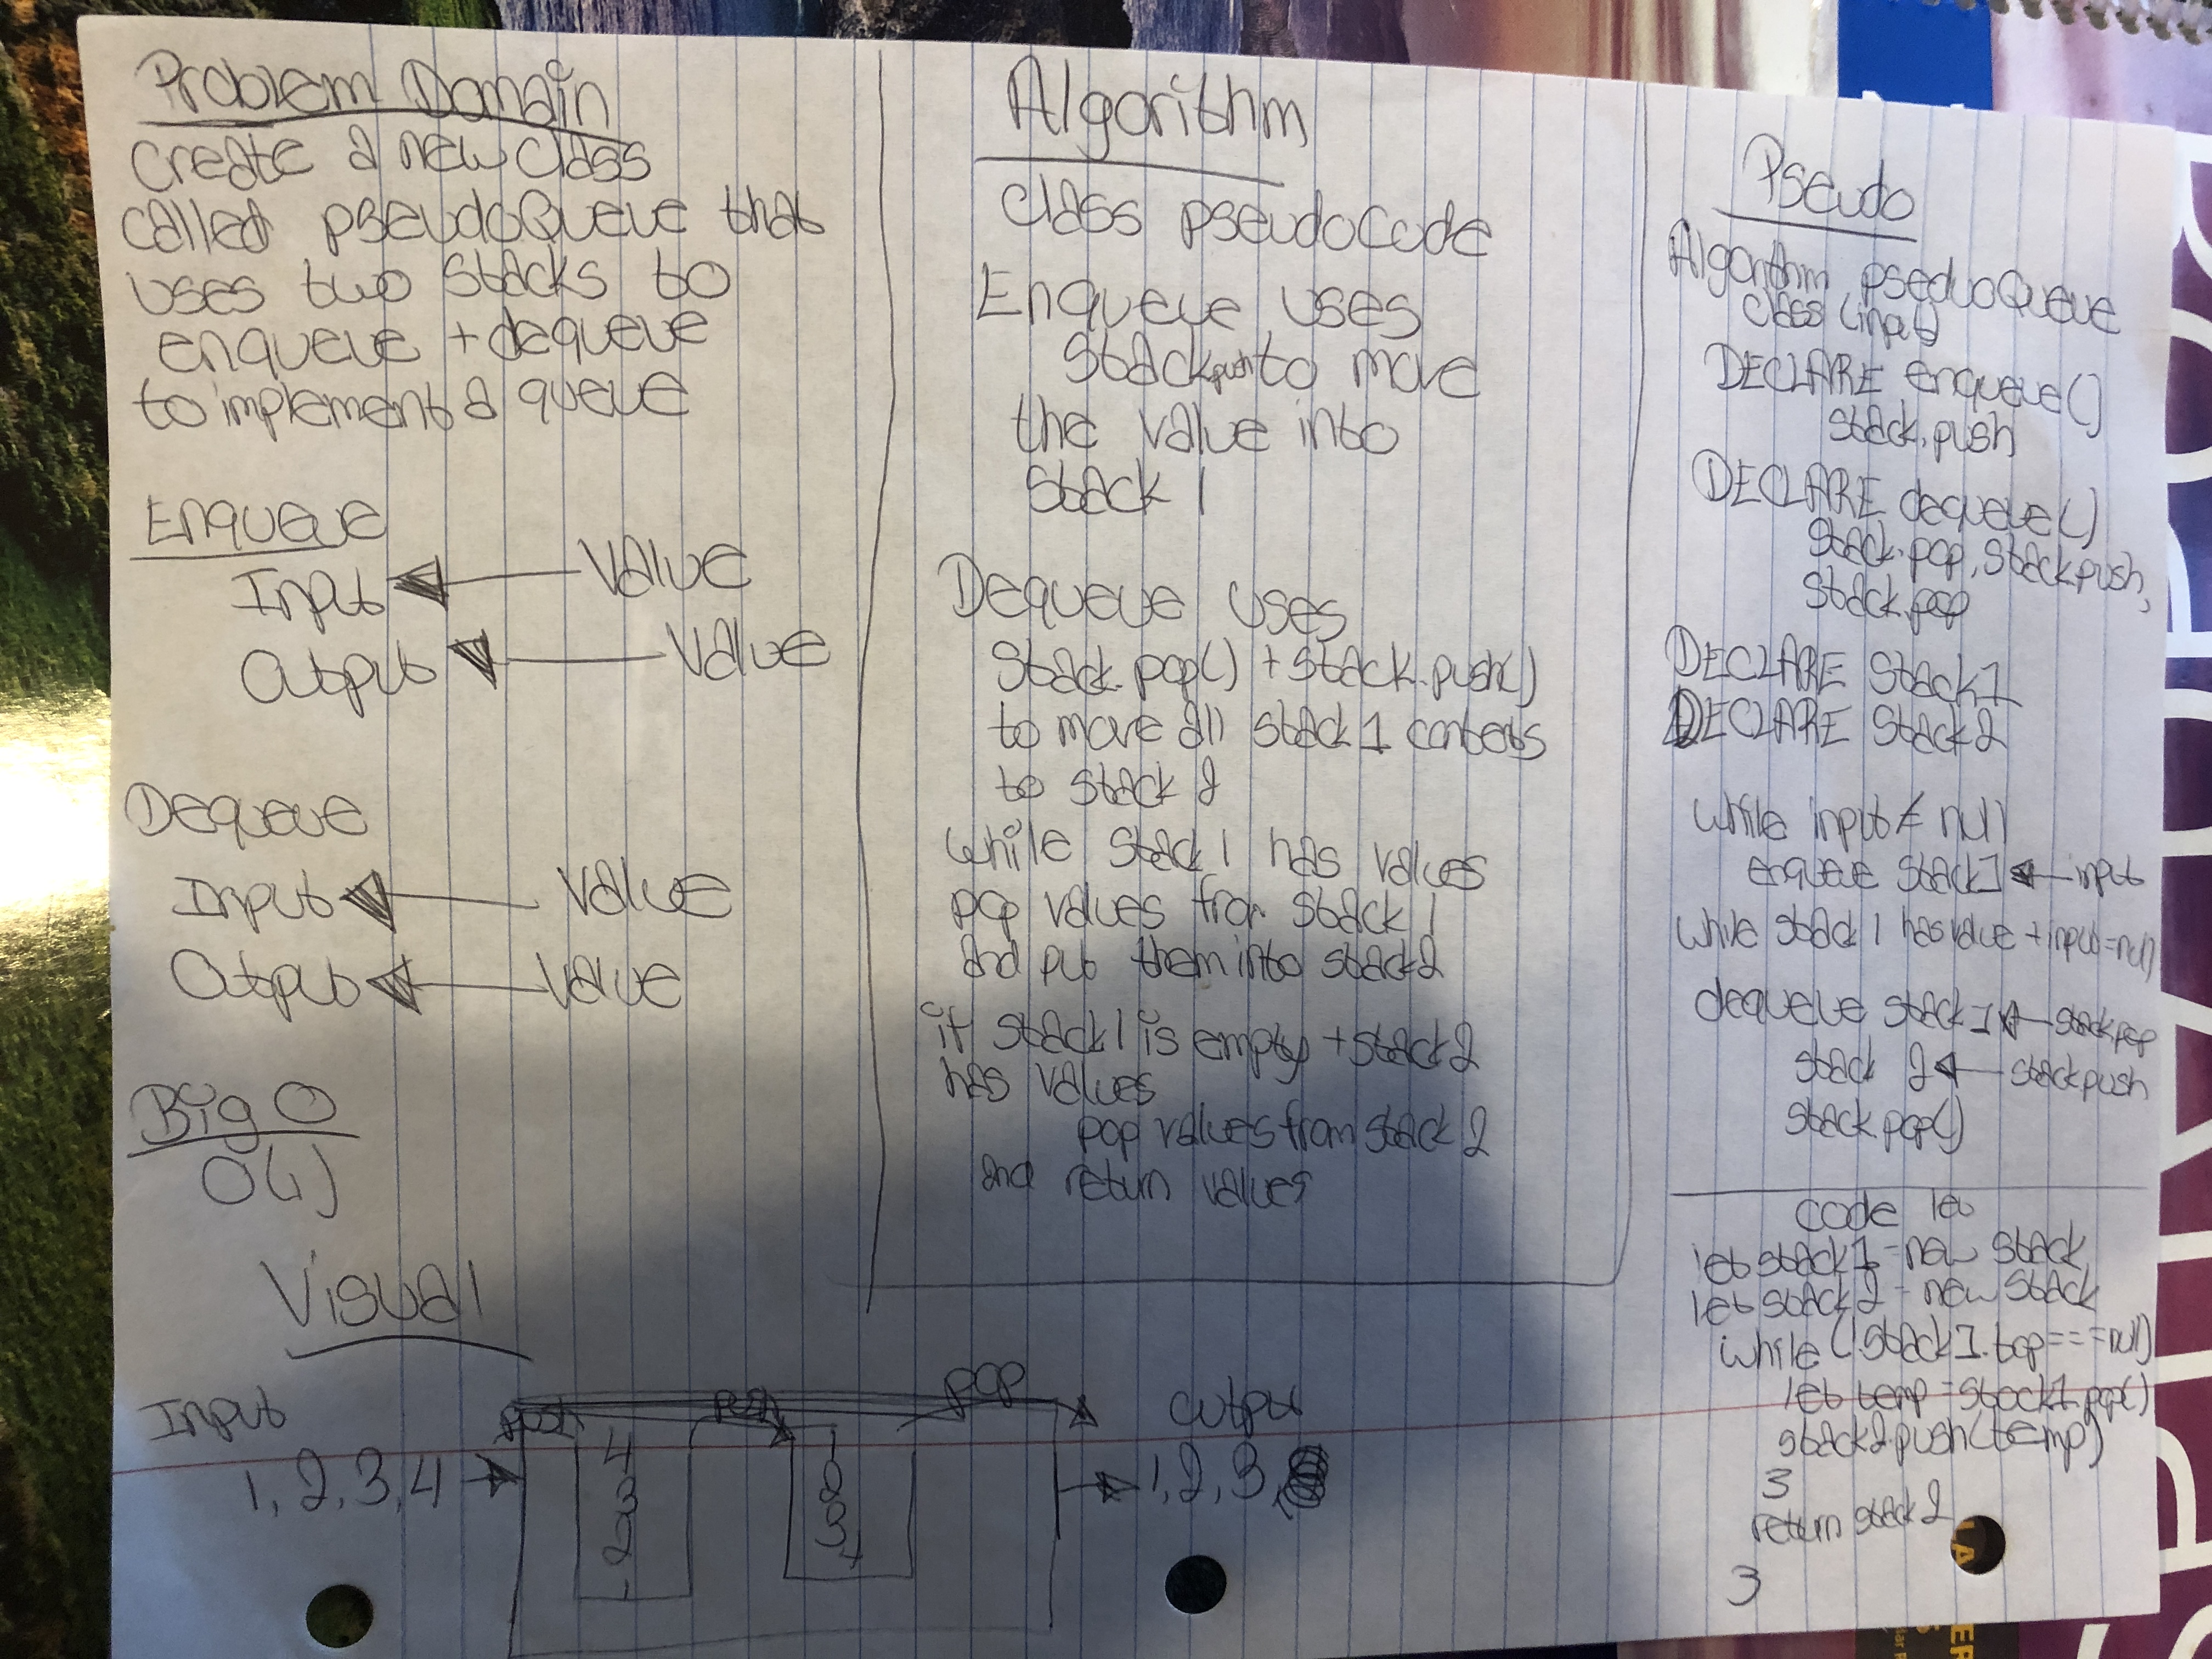 Problem Domain
Create a new class
called pseudoQueue that
uses two stacks to
enqueue + dequeue
to implement a queue
Enqueue
Input ← value
Output ← value
Dequeue
Input ← value
Output ← value
Big O
O(1)
Visual
Input
1,2,3,4 →
push
4
3
2
1
push
1
2
3
4
pop
output
→ 1,2,3
Algorithm
class pseudocode
Enqueue uses
stack.push to move
the value into
stack 1
Dequeue uses
Stack.pop() + stack.push()
to move all stack 1 contents
to stack 2
while stack 1 has values
pop values from stack 1
and put them into stack 2
if stack 1 is empty + stack 2
has values
pop values from stack 2
and return values
Pseudo
Algorithm pseduoQueue
class
DECLARE enqueue()
stack.push
DECLARE dequeue()
stack.pop, stack.push,
stack.pop
DECLARE stack 1
DECLARE stack 2
while input ≠ null
enqueue stack 1 ← input
while stack 1 has value + input = null
dequeue stack 1 ← stack.pop
stack 2 ← stack push
stack pop()
Code
let stack1 = new stack
let stack 2 = new stack
while (!stack1.top === null)
let temp = stack1.pop()
stack2.push(temp)
}
return stack 2
}